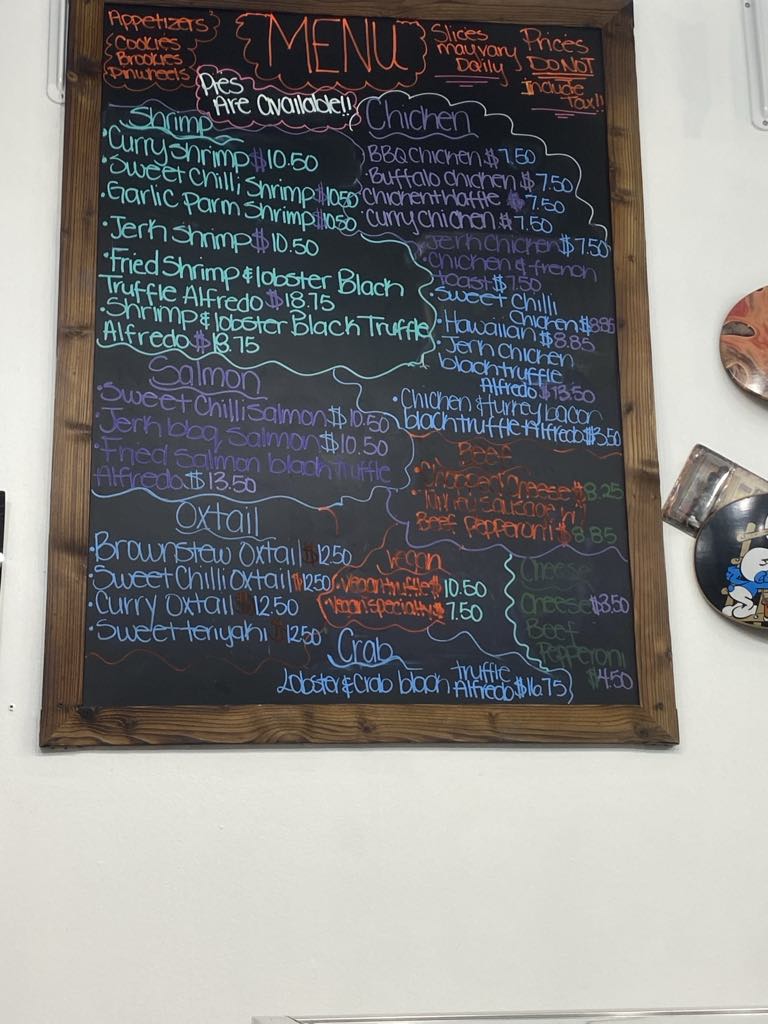 Appetizers
Cookies
Brookies
Pinwheels
MENU
Slices
may vary
Daily
Prices
DO NOT
Include
Tax!!
Pies
Are available!!
Shrimp
• Curry Shrimp $10.50
• Sweet Chilli Shrimp $10.50
• Garlic Parm Shrimp $10.50
• Jerk Shrimp $10.50
• Fried Shrimp & lobster Black
Truffle Alfredo $18.75
• Shrimp & lobster Black Truffle
Alfredo $18.75
Chicken
BBQ chicken $7.50
• Buffalo chicken $7.50
• chicken+Waffle $7.50
• curry chicken $7.50
• Jerk chicken $7.50
• chicken & french
toast $7.50
• Sweet Chilli
Chicken $8.85
• Hawaiian $8.85
• Jerk chicken
black truffle
Alfredo $13.50
• Chicken & turkey bacon
black truffle Alfredo $13.50
Salmon
• Sweet Chilli Salmon $10.50
• Jerk bbq Salmon $10.50
• Fried Salmon black truffle
Alfredo $13.50
Beef
• Chopped Cheese $8.25
Sausage n'
Beef Pepperoni $8.85
Oxtail
• Brownstew Oxtail $12.50
• Sweet Chilli Oxtail $12.50
• Curry Oxtail $12.50
• Sweet teriyaki $12.50
Vegan
• Vegan truffle $10.50
• Vegan specialty $7.50
Cheese
Cheese $3.50
Beef
Pepperoni
$4.50
Crab
Lobster & Crab black truffle
Alfredo $16.75